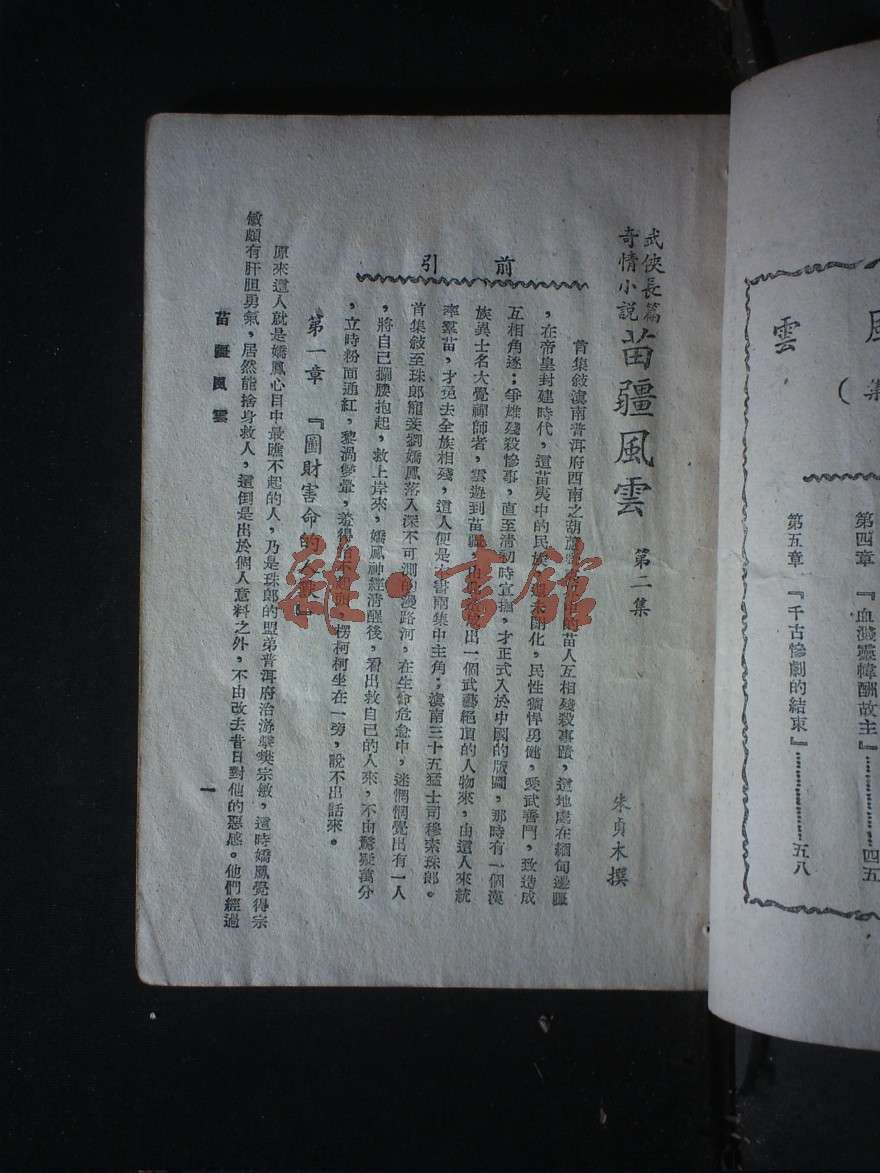 風
雲
集
（
第四章 『血濺靈幃酬故主』…………四五
第五章 『千古慘劇的結束』…………五八
武俠長篇
奇情小說
苗疆風雲 第二集
朱貞木撰
前引
首集敘滇南普洱府西南之葫蘆 的苗人互相殘殺事蹟，這地處在緬甸邊疆
，在帝皇封建時代，這苗夷中的民族 未開化，民性獷悍勇健，愛武善鬥，致造成
互相角逐；爭雄殘殺慘事，直至清初時宣撫，才正式入於中國的版圖，那時有一個漢
族異士名大覺禪師者，雲遊到苗疆， 出一個武藝絕頂的人物來，由這人來統
率羣苗，才免去全族相殘，這人便是本書兩集中主角；滇南三十五猛士司穆索珠郎。
首集敘至珠郎寵妾劉嬌鳳落入深不可測的漫路河，在生命危急中，迷惘惘覺出有一人
，將自己攔腰抱起，救上岸來，嬌鳳神經清醒後，看出救自己的人來，不由驚疑萬分
，立時粉面通紅，黎渦雙暈，羞得 不起頭，楞柯柯坐在一旁，說不出話來。
第一章 『圖財害命的 』
原來這人就是嬌鳳心目中最瞧不起的人，乃是珠郎的盟弟普洱府治游擊樊宗敏，這時嬌鳳覺得宗
敏頗有肝胆勇氣，居然能捨身救人，這倒是出於個人意料之外，不由改去昔日對他的惡感。他們經過
苗疆風雲
一
雜·書館